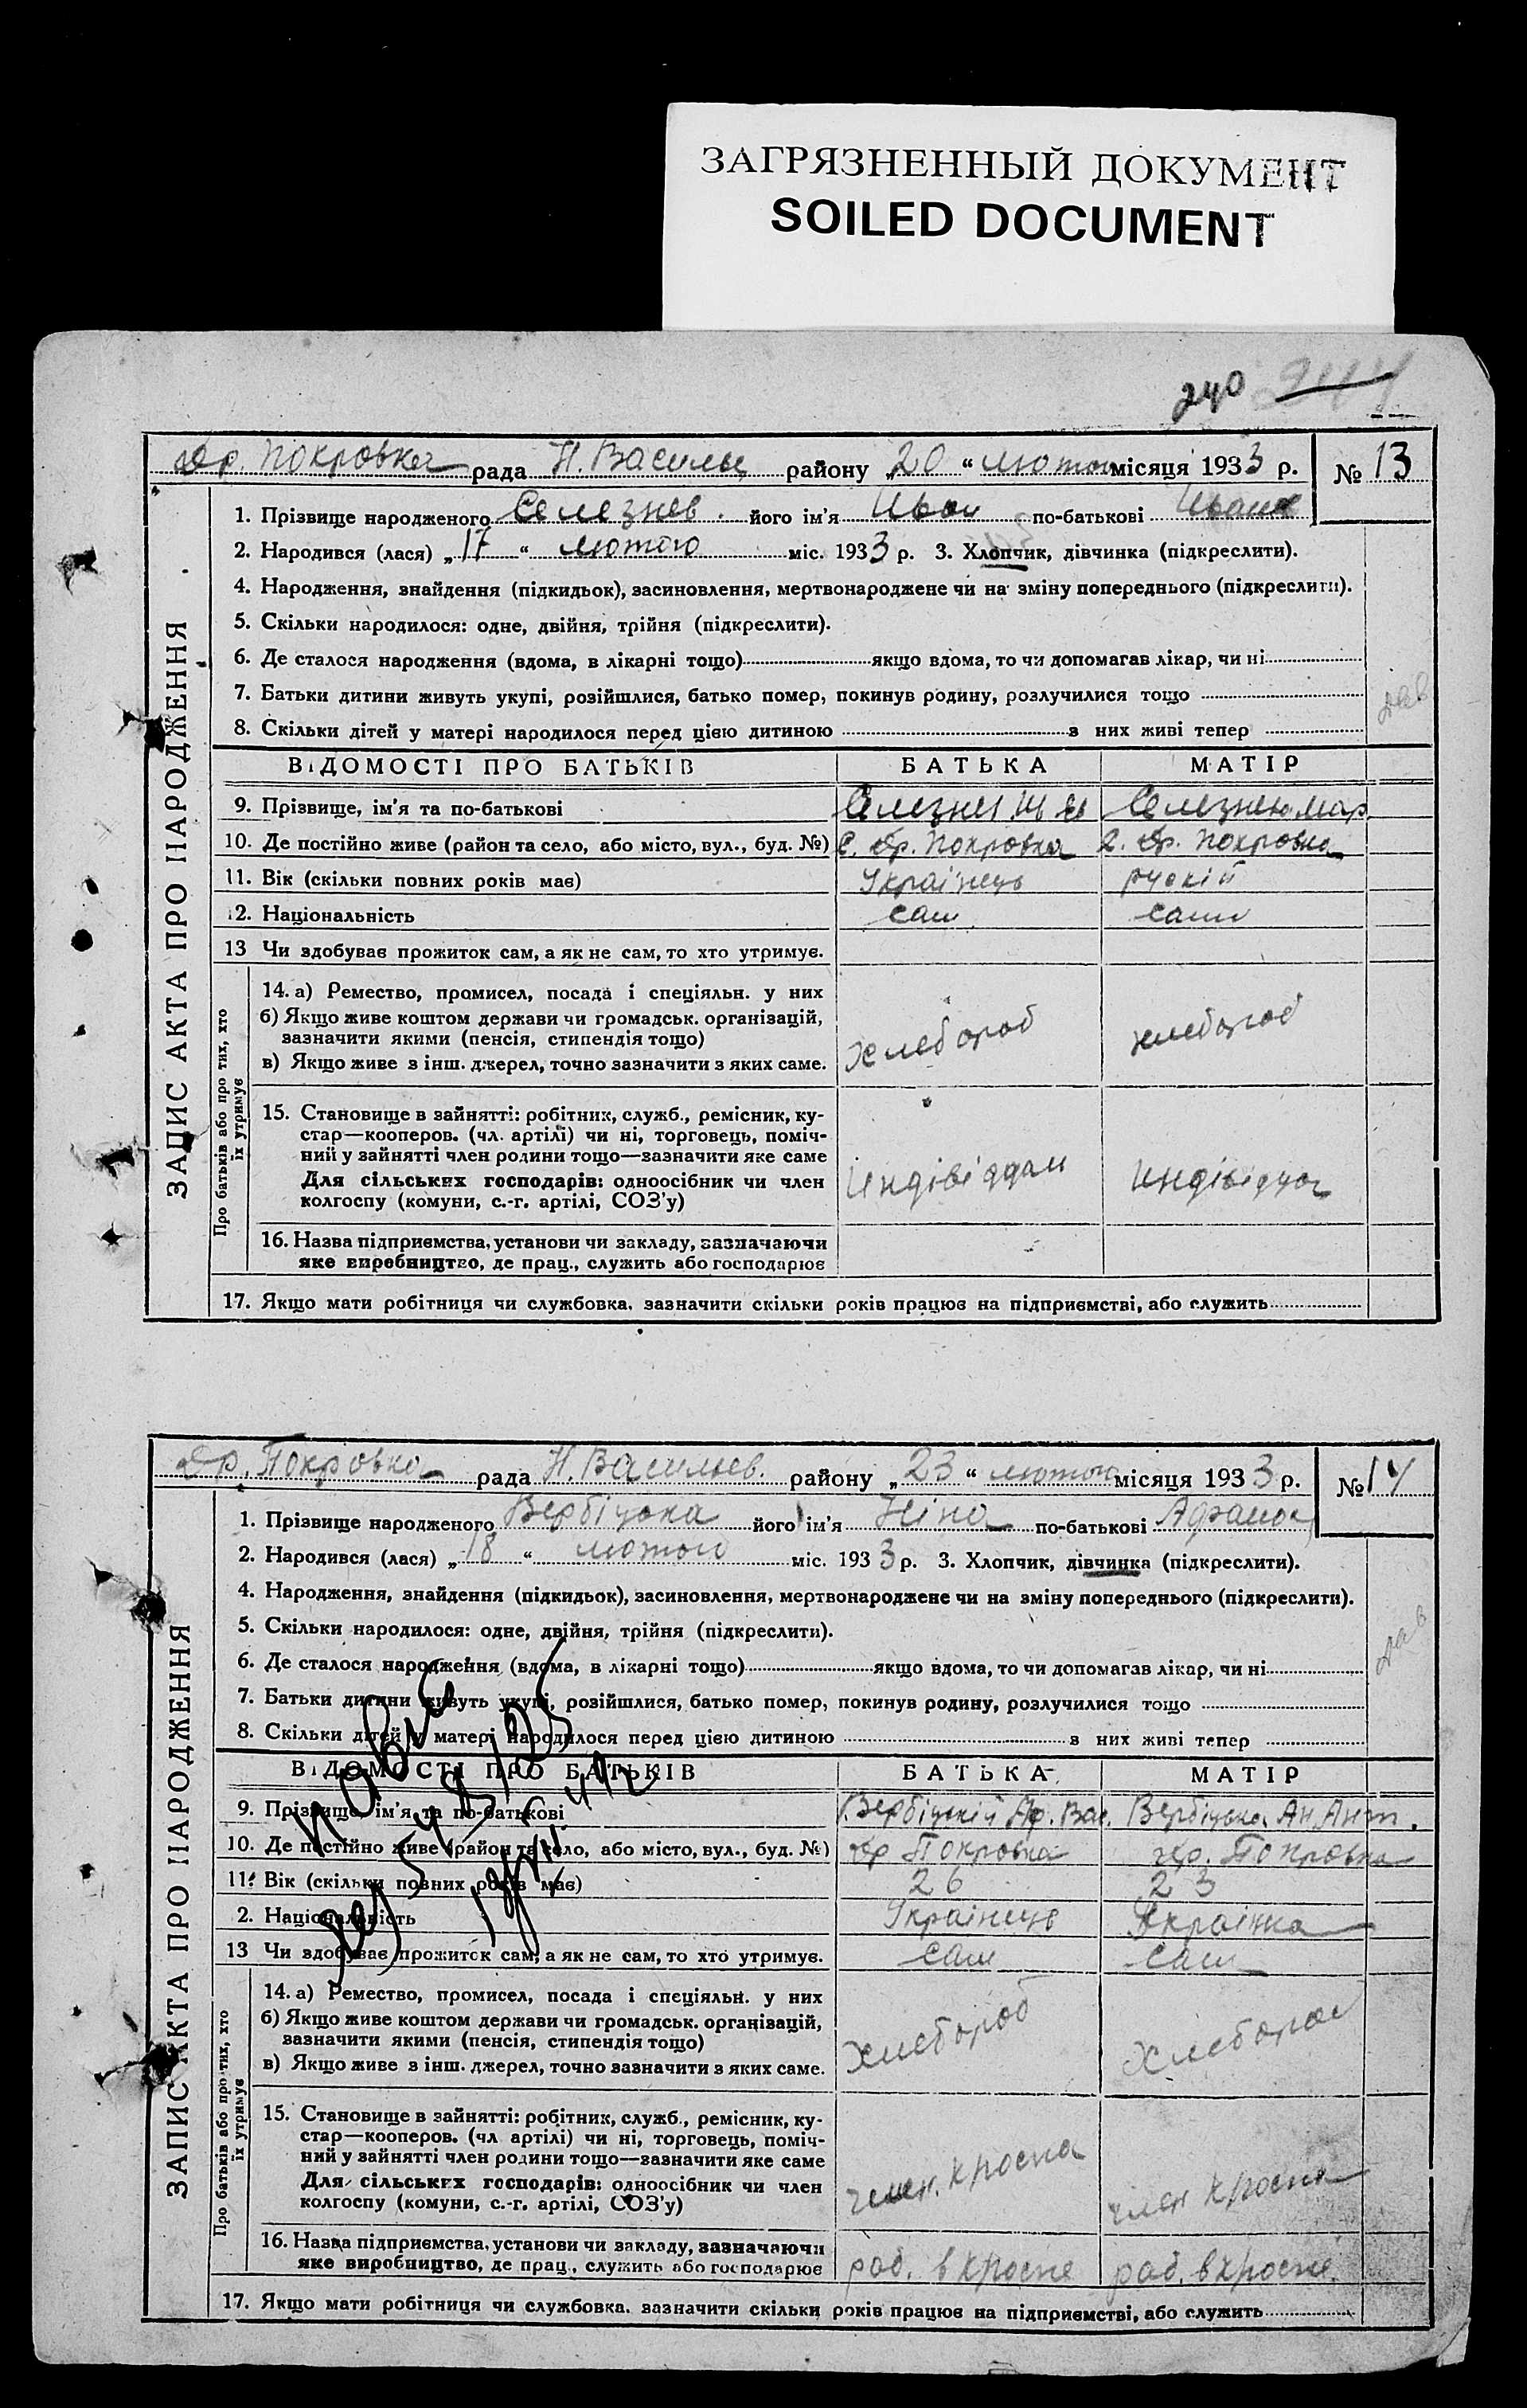 ЗАГРЯЗНЕННЫЙ ДОКУМЕНТ
SOILED DOCUMENT
240 244
ЗАПИС АКТА ПРО НАРОДЖЕННЯ
Др. Покровка рада Н. Василь району „20“ лютого місяця 1933 р. № 13
1. Прізвище народженого Селезнев його ім'я Иван по-батькові
2. Народився (лася) „17“ лютого міс. 1933 р. 3. Хлопчик, дівчинка (підкреслити).
4. Народження, знайдення (підкидьок), засиновлення, мертвонароджене чи на зміну попереднього (підкреслити).
5. Скільки народилося: одне, двійня, трійня (підкреслити).
6. Де сталося народження (вдома, в лікарні тощо) якщо вдома, то чи допомагав лікар, чи ні
7. Батьки дитини живуть укупі, розійшлися, батько помер, покинув родину, розлучилися тощо
8. Скільки дітей у матері народилося перед цією дитиною з них живі тепер
ВІДОМОСТІ ПРО БАТЬКІВ БАТЬКА МАТІР
9. Прізвище, ім'я та по-батькові Мар.
10. Де постійно живе (район та село, або місто, вул., буд. №) с. Др. Покровка с. Др. Покровка
11. Вік (скільки повних років має) Українець рускій
12. Національність сам сами
13 Чи здобуває прожиток сам, а як не сам, то хто утримує.
Про батьків або про тих, хто їх утримує
14. а) Ремество, промисел, посада і спеціяльн. у них
б) Якщо живе коштом держави чи громадськ. організацій,
зазначити якими (пенсія, стипендія тощо)
в) Якщо живе з інш. джерел, точно зазначити з яких саме.
хлебороб хлебороб
15. Становище в зайнятті: робітник, служб., ремісник, ку-
стар—кооперов. (чл. артілі) чи ні, торговець, поміч-
ний у зайнятті член родини тощо—зазначити яке саме
Для сільських господарів: одноосібник чи член
колгоспу (комуни, с.-г. артілі, СОЗ'у)
16. Назва підприємства, установи чи закладу, зазначаючи
яке виробництво, де прац., служить або господарює
17. Якщо мати робітниця чи службовка, зазначити скільки років працює на підприємстві, або служить
ЗАПИС АКТА ПРО НАРОДЖЕННЯ
Др. Покровка рада Н. Васильев. району „23“ лютого місяця 1933 р. № 14
1. Прізвище народженого Вербіцька його ім'я Ніна по-батькові
2. Народився (лася) „18“ лютого міс. 1933 р. 3. Хлопчик, дівчинка (підкреслити).
4. Народження, знайдення (підкидьок), засиновлення, мертвонароджене чи на зміну попереднього (підкреслити).
5. Скільки народилося: одне, двійня, трійня (підкреслити).
6. Де сталося народження (вдома, в лікарні тощо) якщо вдома, то чи допомагав лікар, чи ні
7. Батьки дитини живуть укупі, розійшлися, батько помер, покинув родину, розлучилися тощо
8. Скільки дітей у матері народилося перед цією дитиною з них живі тепер
ВІДОМОСТІ ПРО БАТЬКІВ БАТЬКА МАТІР
9. Прізвище, ім'я та по-батькові Вербіцький Вас. Вербіцька Ан. Ант.
10. Де постійно живе (район та село, або місто, вул., буд. №) Др Покровка Др. Покровка
11. Вік (скільки повних років має) 26 23
2. Національність Українець Українка
13 Чи здобуває прожиток сам, а як не сам, то хто утримує. сам сам
Про батьків або про тих, хто їх утримує
14. а) Ремество, промисел, посада і спеціяльн. у них
б) Якщо живе коштом держави чи громадськ. організацій,
зазначити якими (пенсія, стипендія тощо)
в) Якщо живе з інш. джерел, точно зазначити з яких саме.
хлебороб хлебороб
15. Становище в зайнятті: робітник, служб., ремісник, ку-
стар—кооперов. (чл. артілі) чи ні, торговець, поміч-
ний у зайнятті член родини тощо—зазначити яке саме
Для сільських господарів: одноосібник чи член
колгоспу (комуни, с.-г. артілі, СОЗ'у)
член член
16. Назва підприємства, установи чи закладу, зазначаючи
яке виробництво, де прац., служить або господарює
роб. в роб. в
17. Якщо мати робітниця чи службовка, зазначити скільки років працює на підприємстві, або служить